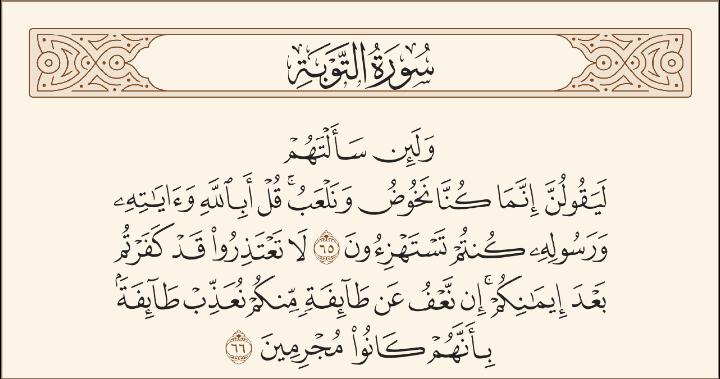 سُورَةُ التَّوْبَةِ
وَلَئِن سَأَلْتَهُمْ
لَيَقُولُنَّ إِنَّمَا كُنَّا نَخُوضُ وَنَلْعَبُ ۚ قُلْ أَبِٱللَّهِ وَءَايَٰتِهِۦ
وَرَسُولِهِۦ كُنتُمْ تَسْتَهْزِءُونَ ٦٥ لَا تَعْتَذِرُوا۟ قَدْ كَفَرْتُم
بَعْدَ إِيمَٰنِكُمْ ۚ إِن نَّعْفُ عَن طَآئِفَةٍ مِّنكُمْ نُعَذِّبْ طَآئِفَةًۢ
بِأَنَّهُمْ كَانُوا۟ مُجْرِمِينَ ٦٦